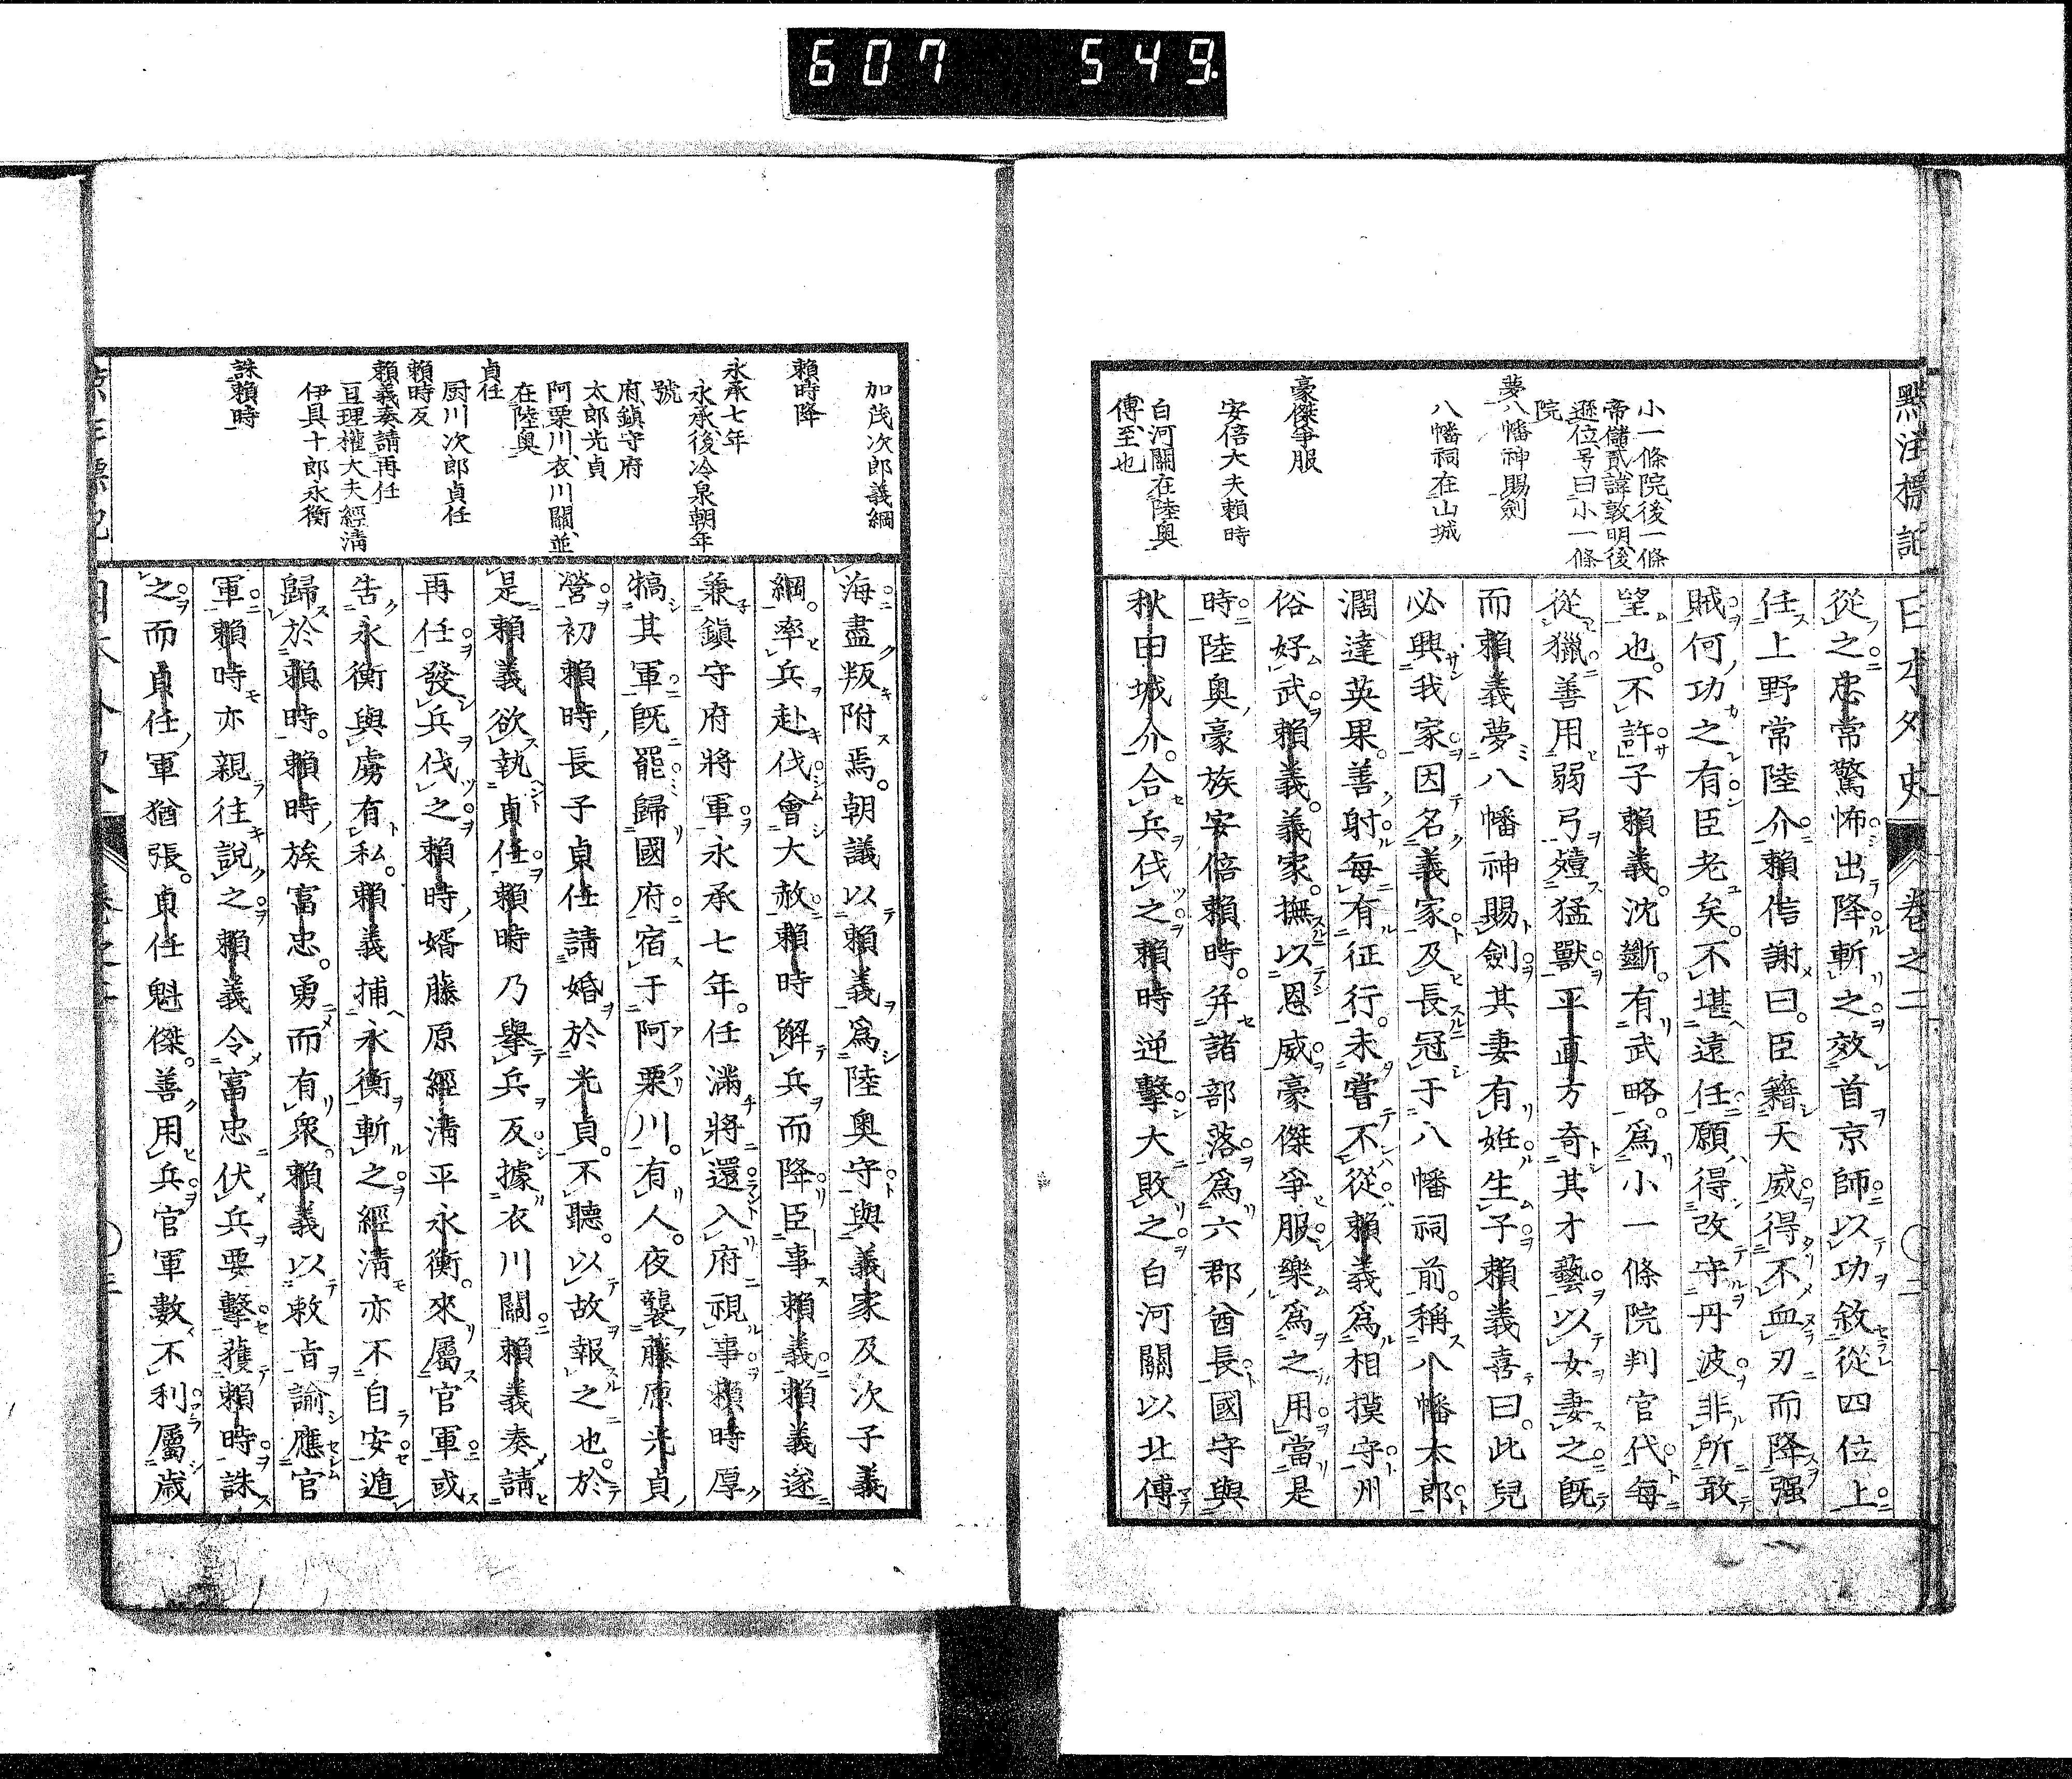 607 549.
點注標記
日本外史 卷之二 〇二
小一條院、後一條
帝儲貳、諱敦明、後
遜位、号曰小一條
院
夢八幡神賜劍
八幡祠在山城
豪傑爭服
安倍大夫賴時
白河關在陸奥
傅、至也
從之。忠常驚怖出降。斬之。效首京師。以功敘從四位上。
任上野常陸介。賴信謝曰。臣籍天威。得不血刃而降强
賊。何功之有。臣老矣。不堪遠任。願得改守丹波。非所敢
望也。不許。子賴義。沈斷。有武略。爲小一條院判官代。每
從獵。善用弱弓。殪猛獸。平直方奇其才藝。以女妻之。既
而賴義夢八幡神賜劍。其妻有娠。生子。賴義喜曰。此兒
必興我家。因名義家。及長。冠于八幡祠前。稱八幡太郎。
濶達英果。善射。每有征行。未嘗不從。賴義爲相摸守。州
俗好武。賴義。義家。撫以恩威。豪傑爭服。樂爲之用。當是
時。陸奥豪族安倍賴時。并諸部落。爲六郡酋長。國守與
秋田城介。合兵伐之。賴時逆擊。大敗之。白河關以北。傅
加茂次郎義綱
賴時降
永承七年
永承、後冷泉朝年
號
府、鎮守府
太郎光貞
阿栗川、衣川關、並
在陸奥
貞任
厨川次郎貞任
賴時反
賴義奏請再任
亘理權大夫經淸
伊具十郎永衡
誅賴時
海盡叛附焉。朝議以賴義爲陸奥守。與義家及次子義
綱。率兵赴伐。會大赦。賴時解兵而降。臣事賴義。賴義遂
兼鎮守府將軍。永承七年。任滿。將還。入府視事。賴時厚
犒其軍。既罷歸國府。宿于阿栗川。有人。夜襲藤原光貞
營。初賴時長子貞任請婚於光貞。不聽。以故報之也。於
是賴義欲執貞任。賴時乃擧兵反。據衣川關。賴義奏請
再任。發兵伐之。賴時婿藤原經淸平永衡。來屬官軍。或
告永衡與虜有私。賴義捕永衡斬之。經淸亦不自安。遁
歸於賴時。賴時族富忠。勇而有衆。賴義以敕旨諭應官
軍。賴時亦親往說之。賴義令富忠伏兵要擊。獲賴時誅
之。而貞任軍猶張。貞任魁傑。善用兵。官軍數不利。屬歲